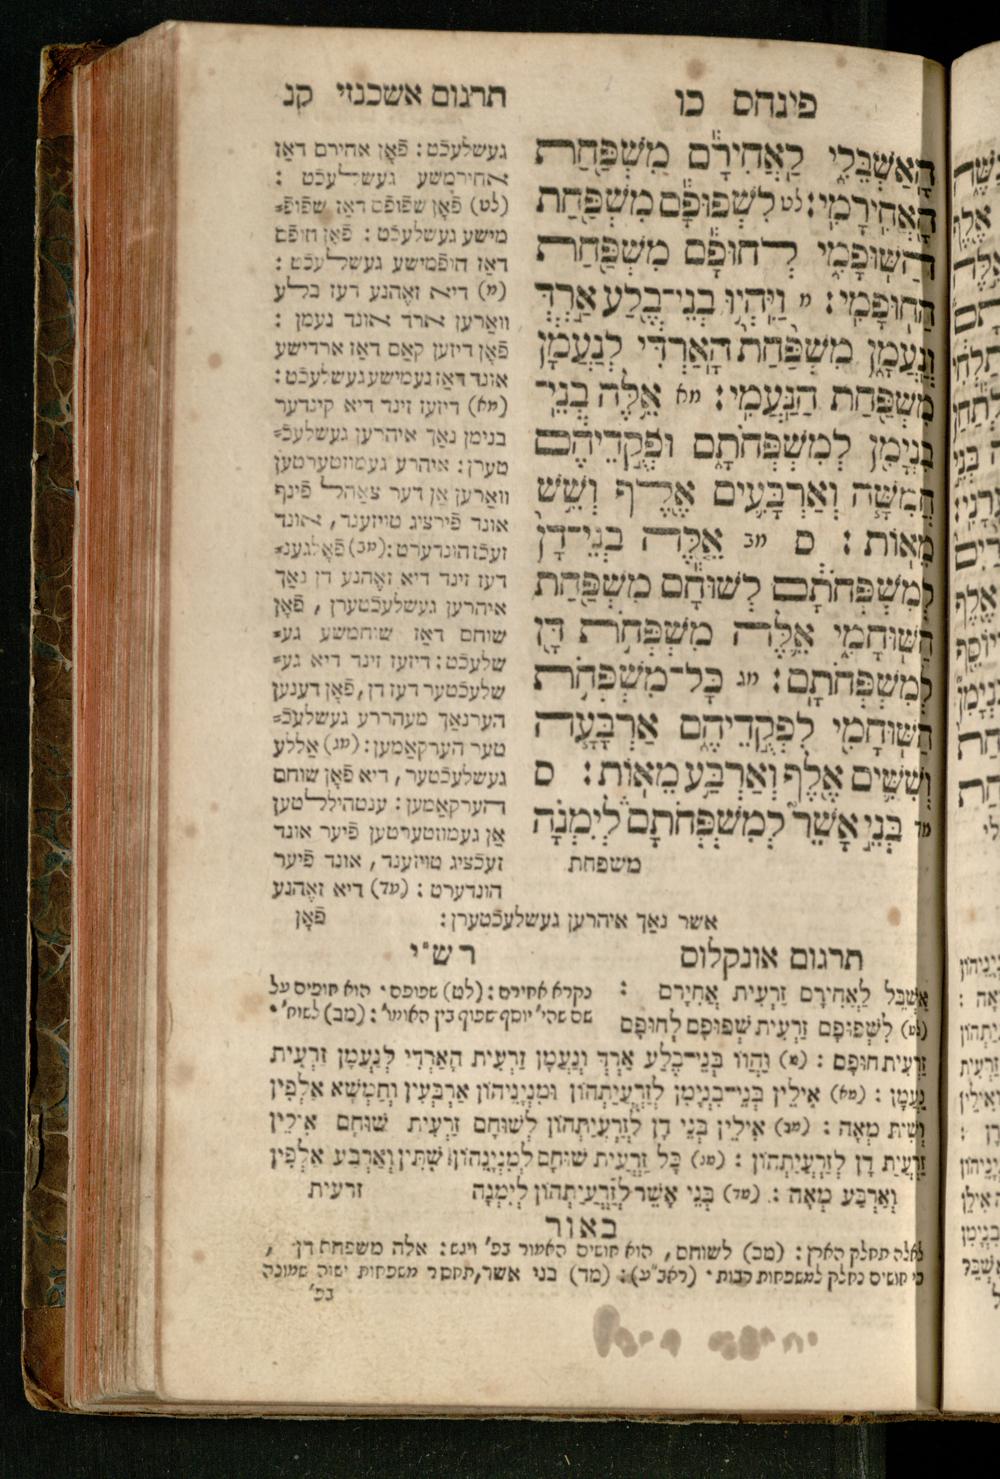 פינחס כו
האַשְׁבֵּלִי לַאֲחִירָם מִשְׁפַּחַת
הָאֲחִירָמִי: לט לִשְׁפוּפָם מִשְׁפַּחַת
הַשּׁוּפָמִי לְחוּפָם מִשְׁפַּחַת
הַחוּפָמִי: מ וַיִּהְיוּ בְנֵי־בֶלַע אַרְדְּ
וְנַעֲמָן מִשְׁפַּחַת הָאַרְדִּי לְנַעֲמָן
מִשְׁפַּחַת הַנַּעֲמִי: מא אֵלֶּה בְנֵי־
בִנְיָמִן לְמִשְׁפְּחֹתָם וּפְקֻדֵיהֶם
חֲמִשָּׁה וְאַרְבָּעִים אֶלֶף וְשֵׁשׁ
מֵאוֹת: ס מב אֵלֶּה בְנֵי־דָן
לְמִשְׁפְּחֹתָם לְשׁוּחָם מִשְׁפַּחַת
הַשּׁוּחָמִי אֵלֶּה מִשְׁפְּחֹת דָּן
לְמִשְׁפְּחֹתָם: מג כָּל־מִשְׁפְּחֹת
הַשּׁוּחָמִי לִפְקֻדֵיהֶם אַרְבָּעָה
וְשִׁשִּׁים אֶלֶף וְאַרְבַּע מֵאוֹת: ס
מד בְּנֵי אָשֵׁר לְמִשְׁפְּחֹתָם לְיִמְנָה
משפחת
תרגום אשכנזי קנ
געשלעכֿט: פֿאָן אחירם דאַז
אחירמשע געשלעכֿט:
(לט) פֿאָן שפֿופֿם דאַז שפֿופֿ=
מישע געשלעכֿט: פֿאָן חופֿם
דאַז חופֿמישע געשלעכֿט:
(מ) דיא זאֶהנע דעז בלע
וואַרען ארד אונד נעמן:
פֿאָן דיזען קאַם דאַז ארדישע
אונד דאַז נעמישע געשלעכֿט:
(מא) דיזעז זינד דיא קינדער
בנימן נאַך איהרען געשלעכֿ=
טערן: איהרע געמוסטערטען
וואַרען אַן דער צאַהל פֿינף
אונד פֿירציג טויזענד, אונד
זעכֿז הונדערט: (מב) פֿאָלגענ=
דעז זינד דיא זאֶהנע דן נאַך
איהרען געשלעכֿטערן, פֿאָן
שוחם דאַז שוחמשע גע=
שלעכֿט: דיזעז זינד דיא גע=
שלעכֿטער דעז דן, פֿאָן דענען
הערנאַך מעהררע געשלעכֿ=
טער הערקאַמען: (מג) אַללע
געשלעכֿטער, דיא פֿאָן שוחם
הערקאַמען: ענטהילטען
אַן געמוסטערטען פֿיער אונד
זעכֿציג טויזענד, אונד פֿיער
הונדערט: (מד) דיא זאֶהנע
אשר נאַך איהרען געשלעכֿטערן: פֿאָן
תרגום אונקלוס
אַשְׁבֵּל לַאֲחִירָם זַרְעִית אֲחִירָם:
(לט) לִשְׁפוּפָם זַרְעִית שְׁפוּפָם לְחוּפָם
רש"י
נקרא אחירם: (לט) שפופם. הוא מופים על
שם שהי' יוסף שפוף בין האומו': (מב) לשוח'.
זַרְעִית חוּפָם: (מ) וַהֲווֹ בְּנֵי־בֶלַע אַרְדְּ וְנַעֲמָן זַרְעִית הָאַרְדִּי לְנַעֲמָן זַרְעִית
נַעֲמָן: (מא) אִילֵין בְּנֵי־בִנְיָמִן לְזַרְעֲיַתְהוֹן וּמִנְיָנֵיהוֹן אַרְבְּעִין וְחַמְשָׁא אַלְפִין
וְשִׁית מְאָה: (מב) אִילֵין בְּנֵי דָן לְזַרְעֲיַתְהוֹן לְשׁוּחָם זַרְעִית שׁוּחָם אִילֵין
זַרְעֲיַת דָן לְזַרְעֲיַתְהוֹן: (מג) כָּל זַרְעֲיַת שׁוּחָם לְמִנְיָנֵהוֹן שִׁתִּין וְאַרְבַּע אַלְפִין
וְאַרְבַּע מְאָה: (מד) בְּנֵי אָשֵׁר לְזַרְעֲיַתְהוֹן לְיִמְנָה זרעית
באור
לאלה תחלק הארץ: (מב) לשוחם, הוא חושים האמור בפ' ויגש: אלה משפחת דן,
כי חושים נחלק למשפחות רבות. (ראב"ע): (מד) בני אשר, תחסר משפחות ישוה שמונה
בפ'